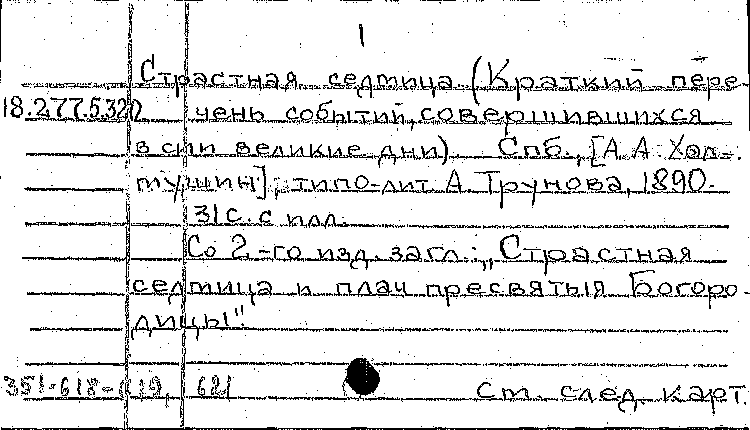 1
Страстная седмица. (Краткий пере-
18.277.5.320 чень событий, совершившихся
в сии великие дни). Спб., [А. А. Хол-
мушин], типо-лит. А. Трунова, 1890.
31 с. с илл.
Со 2-го изд. загл.: „Страстная
седмица и плач пресвятыя Богоро-
дицы".
621
См. след. карт.